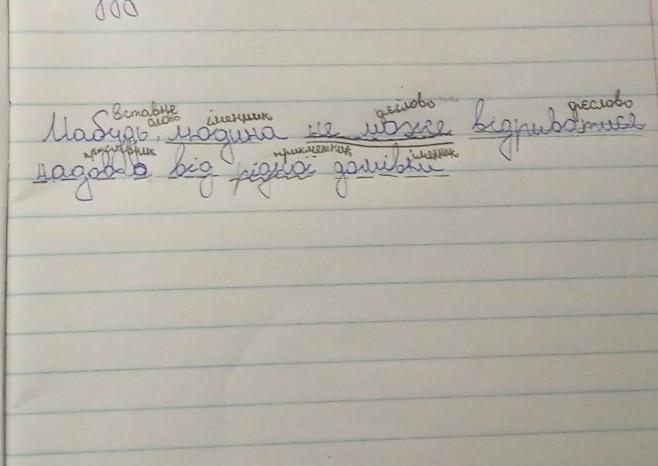 вставне слово іменник дієслово дієслово
Мабудь, людина не може відриватися
прислівник прикметник іменник
надовго від рідної домівки